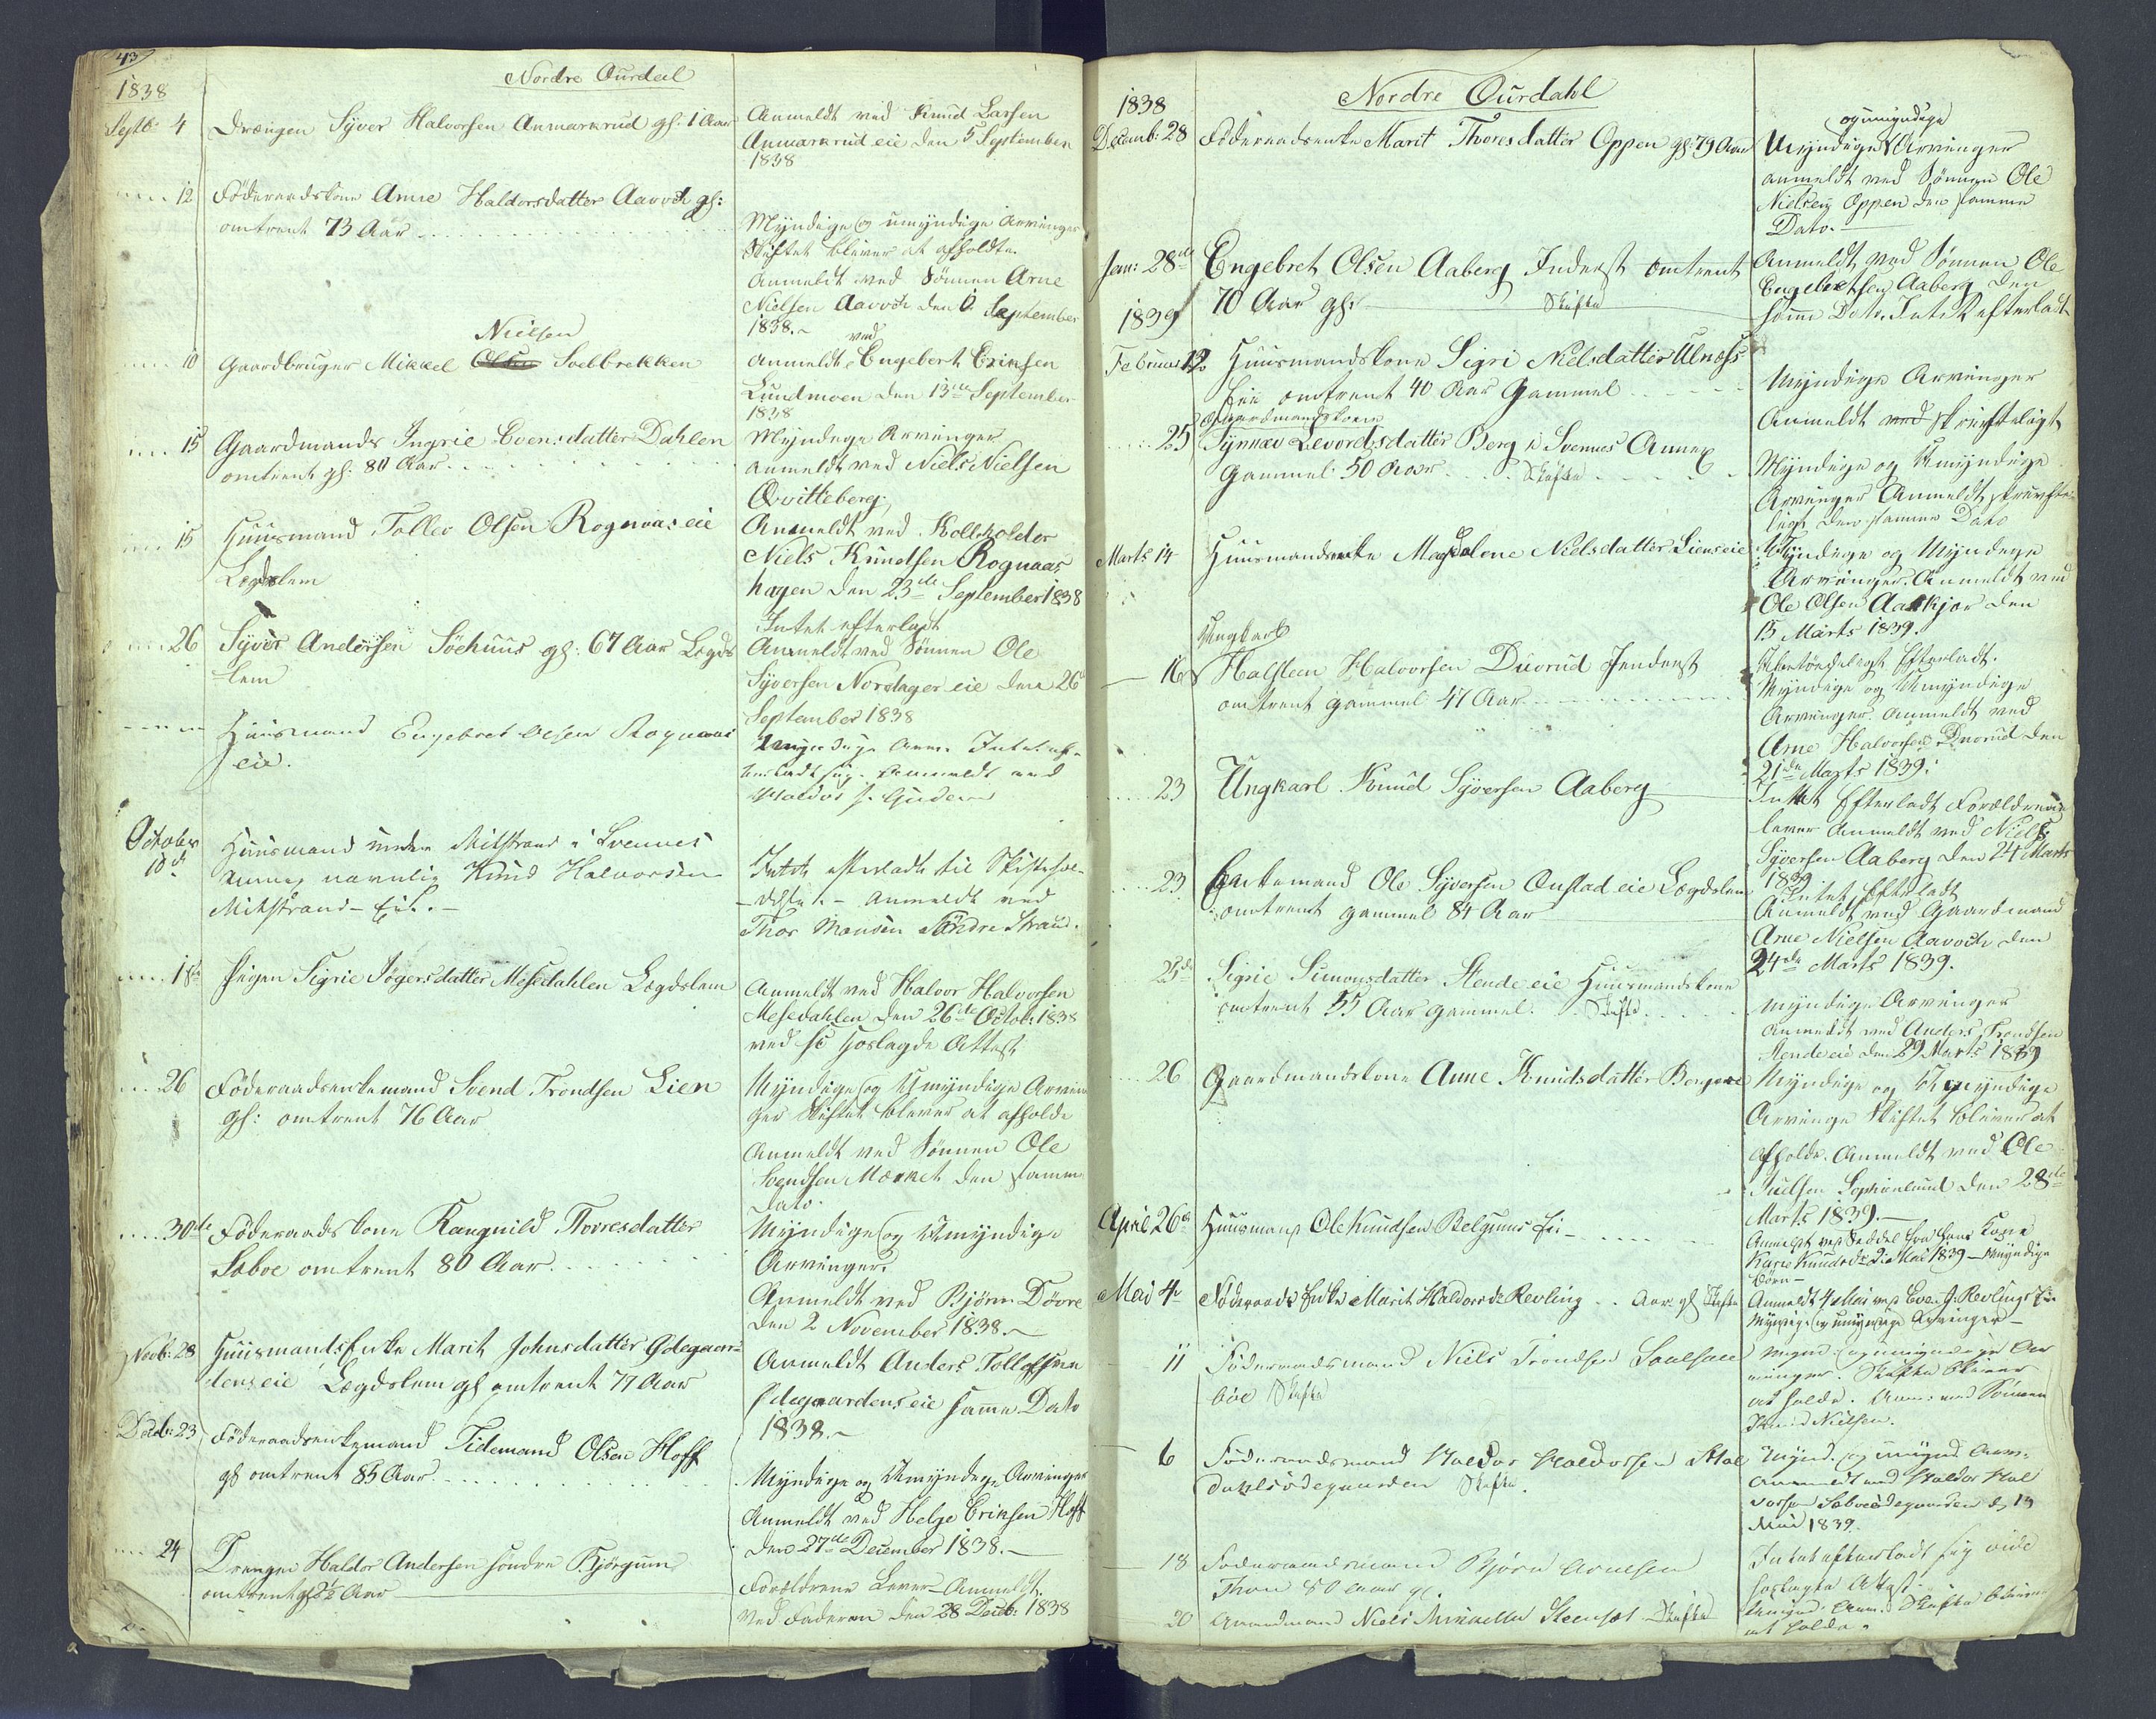 43
Nordre Ourdal
1838
Septb: 4 Drængen Syver Halvorsen Anmarkrud gl: 1 Aar
Anmeldt ved Knud Larsen
Anmarkrud eie den 5 September
1838
12 Føderaadskone Anne Haldorsdatter Aavoch gl:
omtrent 73 Aar
Myndige og umyndige Arvinger
Skiftet bliver at afholdte
Anmeldt ved Sønnen Arne
Nielsen Aavoch den September
1838.
Nielsen
10 Gaardbruger Mikkel Olsen Soelbrekken
ved
Anmeldt Engebert Eriksen
Lundmoen den 13de September
1838
15 Gaardmands Ingrie Evensdatter Dahlen
omtrent gl: 80 Aar
Myndege Arvinger
anmeldt ved Niels Nielsen
Qvitteberg
15 Huusmand Tollev Olsen Rognaas eie
Lægdslem
Anmeldt ved Kollholder
Niels Knudsen Rognaas
hagen den 23de September 1838
Intet efterladt
26 Syver Andersen Söehuus gl: 67 Aar Lægds
lem
Anmeldt ved Sønnen Ole
Syversen Nordager eie den 26de
September 1838
Huusmand Engebret Olsen Rognaas
eie.
Intet ef-
terladt sig. Anmeldt ved
Haldor
October
10de Huusmand under Mitstrand i Svennes
Annex navnlig Knud Halvorsen
Mitstrand-Eie.
Intet efterladt til Skiftehol-
delse. - Anmeldt ved
Thor Monsen Söndre Strand.
18de Pigen Sigrie Iögersdatter Mesedahlen Lægdslem
Anmeldt ved Halvor Halvorsen
Mesedahlen den 26de Octob: 1838
ved hoslagde Attest
26 Føderaadsenkemand Svend Trondsen Lien
gl: omtrent 76 Aar
Myndige og Umyndige Arvin
ger Skiftet blever at afholde
Anmeldt ved Sønnen Ole
Svendsen Mærket den samme
Dato
30de Føderaadskone Rangnild Torresdatter
Sæboe omtrent 80 Aar
Myndige og Umyndige
Arvinger
Anmeldt ved Bjørn Dövre
den 2 November 1838.
Novb: 28 Huusmands Enke Marit Johnsdatter Ødegaar-
dens eie Lægdslem gl omtrent 77 Aar
Anmeldt Anders Tollefsen
Ødegaardens eie samme Dato
1838.
Decb: 23 Føderaadsenkemand Tidemand Olsen Hoff
gl omtrent 85 Aar
Myndige og Umyndege Arvinger
Anmeldt ved Helge Eriksen Hoff
den 27de December 1838.
24 Drengen Haldor Andersen söndre Kjörgum
omtrent gl 2½ Aar
Forældrene Lever-Anmeldt
ved Faderen den 28 Decb: 1838
Nordre Ourdahl
1838
Decemb: 28 Føderaadsenke Marit Thoresdatter Oppen gl: 79 Aar
og umyndige
Myndige Arvinger
anmeldt ved Sønnen Ole
Nielsen Oppen den samme
Dato.
Jan: 28de Engebret Olsen Aaberg Inderst omtrent
1839 70 Aar gl: Skifte
Anmeldt ved Sønnen Ole
Engebretsen Aaberg den
samme Dato. Intet efterladt
Februar 12 Huusmandskone Sigri Nielsdatter Ulnæss
Eie omtrent 40 Aar Gammel
Myndige Arvinger
Anmeldt ved skrivteligt
Gaardmandskone
25 Synnæv Levordsdatter Berg i Svennes Annex
Gammel 50 Aar Skifte
Myndige og Umyndige
Arvinger Anmeldt skrivte-
ligt den samme Dato
Marts 14 Huusmandsenke Magdalene Nielsdatter Liens eie
Myndige og Umyndege
Arvinger. Anmeldt ved
Ole Olsen Aaskjær den
15 Marts 1839.
Ungkarl
16 Halsteen Halvorsen Duvrud Jenderst
omtrent gammel 47 Aar
Efterladt.
Myndige og Umyndige
Arvinger. Anmeldt ved
Arne Halvorsen Duvrud den
21de Marts 1839.
23 Ungkarl Knud Syversen Aaberg
Intet Efterladt Forældrene
lever Anmeldt ved Niels
Syversen Aaberg den 24 Marts
1839
23 Enkemand Ole Syversen Onstad eie Lægdslem
omtrent gammel 84 Aar
Intet Efterladt
Anmeldt ved Gaardmand
Arne Nielsen Aavoch den
24de Marts 1839.
25de Sigrie Simonsdatter Stende eie Huusmandskone
omtrent 55 Aar gammel. Skifte
Myndige Arvinger
anmeldt ved Anders Trondsen
Stende eie den 29 Marts 1839
26 Gaardmandskone Anne Knudsdatter Bergene
Myndige og Umyndige
Arvinge Skiftet bliver at
afholde. Anmeldt ved Ole
Sophienlund den 28de
Marts 1839.
April 26de Huusmand Ole Knudsen Belgums Eie
Anmeldt ved Seddel fra hans Kone
Karie Knudsdr 2 Mai 1839 - Myndige
Børn-
Mai 4de Føderaads Enke Marit Haldorsdr Revling .. Aar gl Skifte
Anmeldt 4 Mai ved Even G. Revlings Eie
Myndige og umyndige Arvinger-
11 Føderaadsmand Niels Trondsen
böe Skifte
Mynd: og umyndige Ar-
vinger. Skifte bliver
at holde. Anm: ved Sønnen
Nielsen.
6 Føderaadsmand Haldor Haldorsen
dahlsödegaarden Skifte.
Mynd. og umynd Arv.
Anmeldt ved Haldor Hal
dorsen Sæbueødegaarden d. 13
Mai 1839.
18 Føderaadsmand Bjørn Arnesen
Thon 80 Aar gl.
Intet efterladt sig vide
hoslagte Attest
20 Gaardmand Niels Mikkelsen Steensæt Skifte
Skifte bliver
at holde.